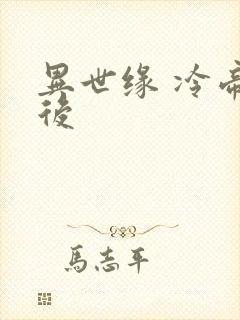 異世缘 冷帝
後
馬志平